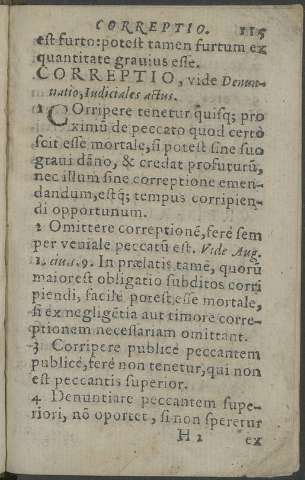 CORREPTIO. 115
est furto: potest tamen furtum ex
quantitate grauius esse.
CORREPTIO, vide Denun-
tiatio, Iudiciales actus.
1 COrripere tenetur quisq; pro
ximū de peccato quod certò
scit esse mortale, si potest sine suo
graui dāno, & credat profuturū,
nec illum sine correptione emen-
dandum, estq; tempus corripien-
di opportunum.
2 Omittere correptionē, ferè sem
per veniale peccatū est. Vide Aug.
1. ciuit. 9. In prælatis tamē, quorū
maior est obligatio subditos corri
piendi, facilè potest esse mortale,
si ex negligētia aut timore corre-
ptionem necessariam omittant.
3 Corripere publicè peccantem
publicè, ferè non tenetur, qui non
est peccantis superior.
4 Denuntiare peccantem supe-
riori, nō oportet, si non speretur
H 2 ex